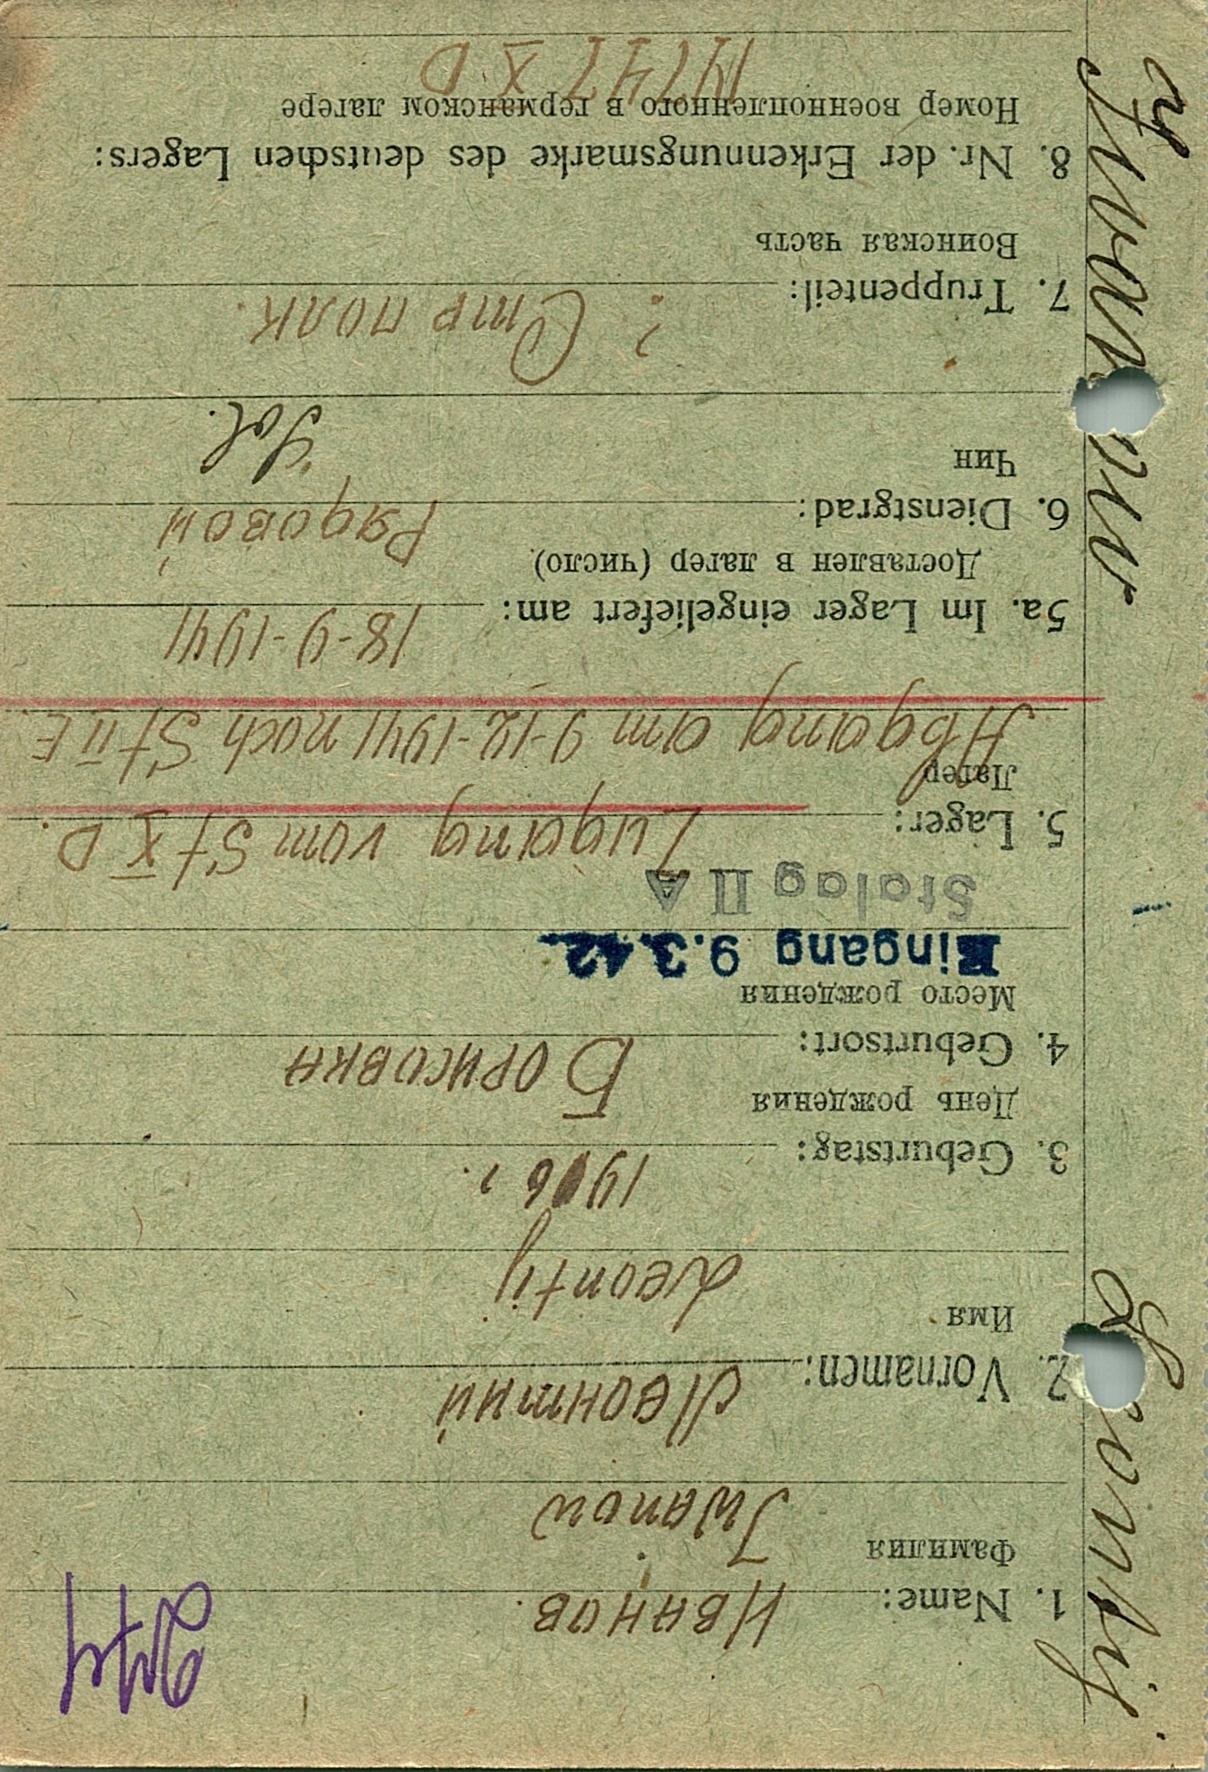 Iwanow
Leontij
1. Name: Иванов.
Фамилия
Iwanow
2. Vornamen: Леонтий
Имя
Leontij
3. Geburtstag: 1906 г.
День рождения
4. Geburtsort: Борисовка
Место рождения
Eingang 9.3.42.
Stalag II A
5. Lager: Zugang vom St X D.
Лагер
Abgang am 9-12-1941 nach St II E.
5a. Im Lager eingeliefert am: 18-9-1941
Доставлен в лагер (число)
6. Dienstgrad: Рядовой
Чин
Sol.
7. Truppenteil: ? Стр полк.
Воинская часть
8. Nr. der Erkennungsmarke des deutschen Lagers:
Номер военнопленного в германском лагере
14747 X D